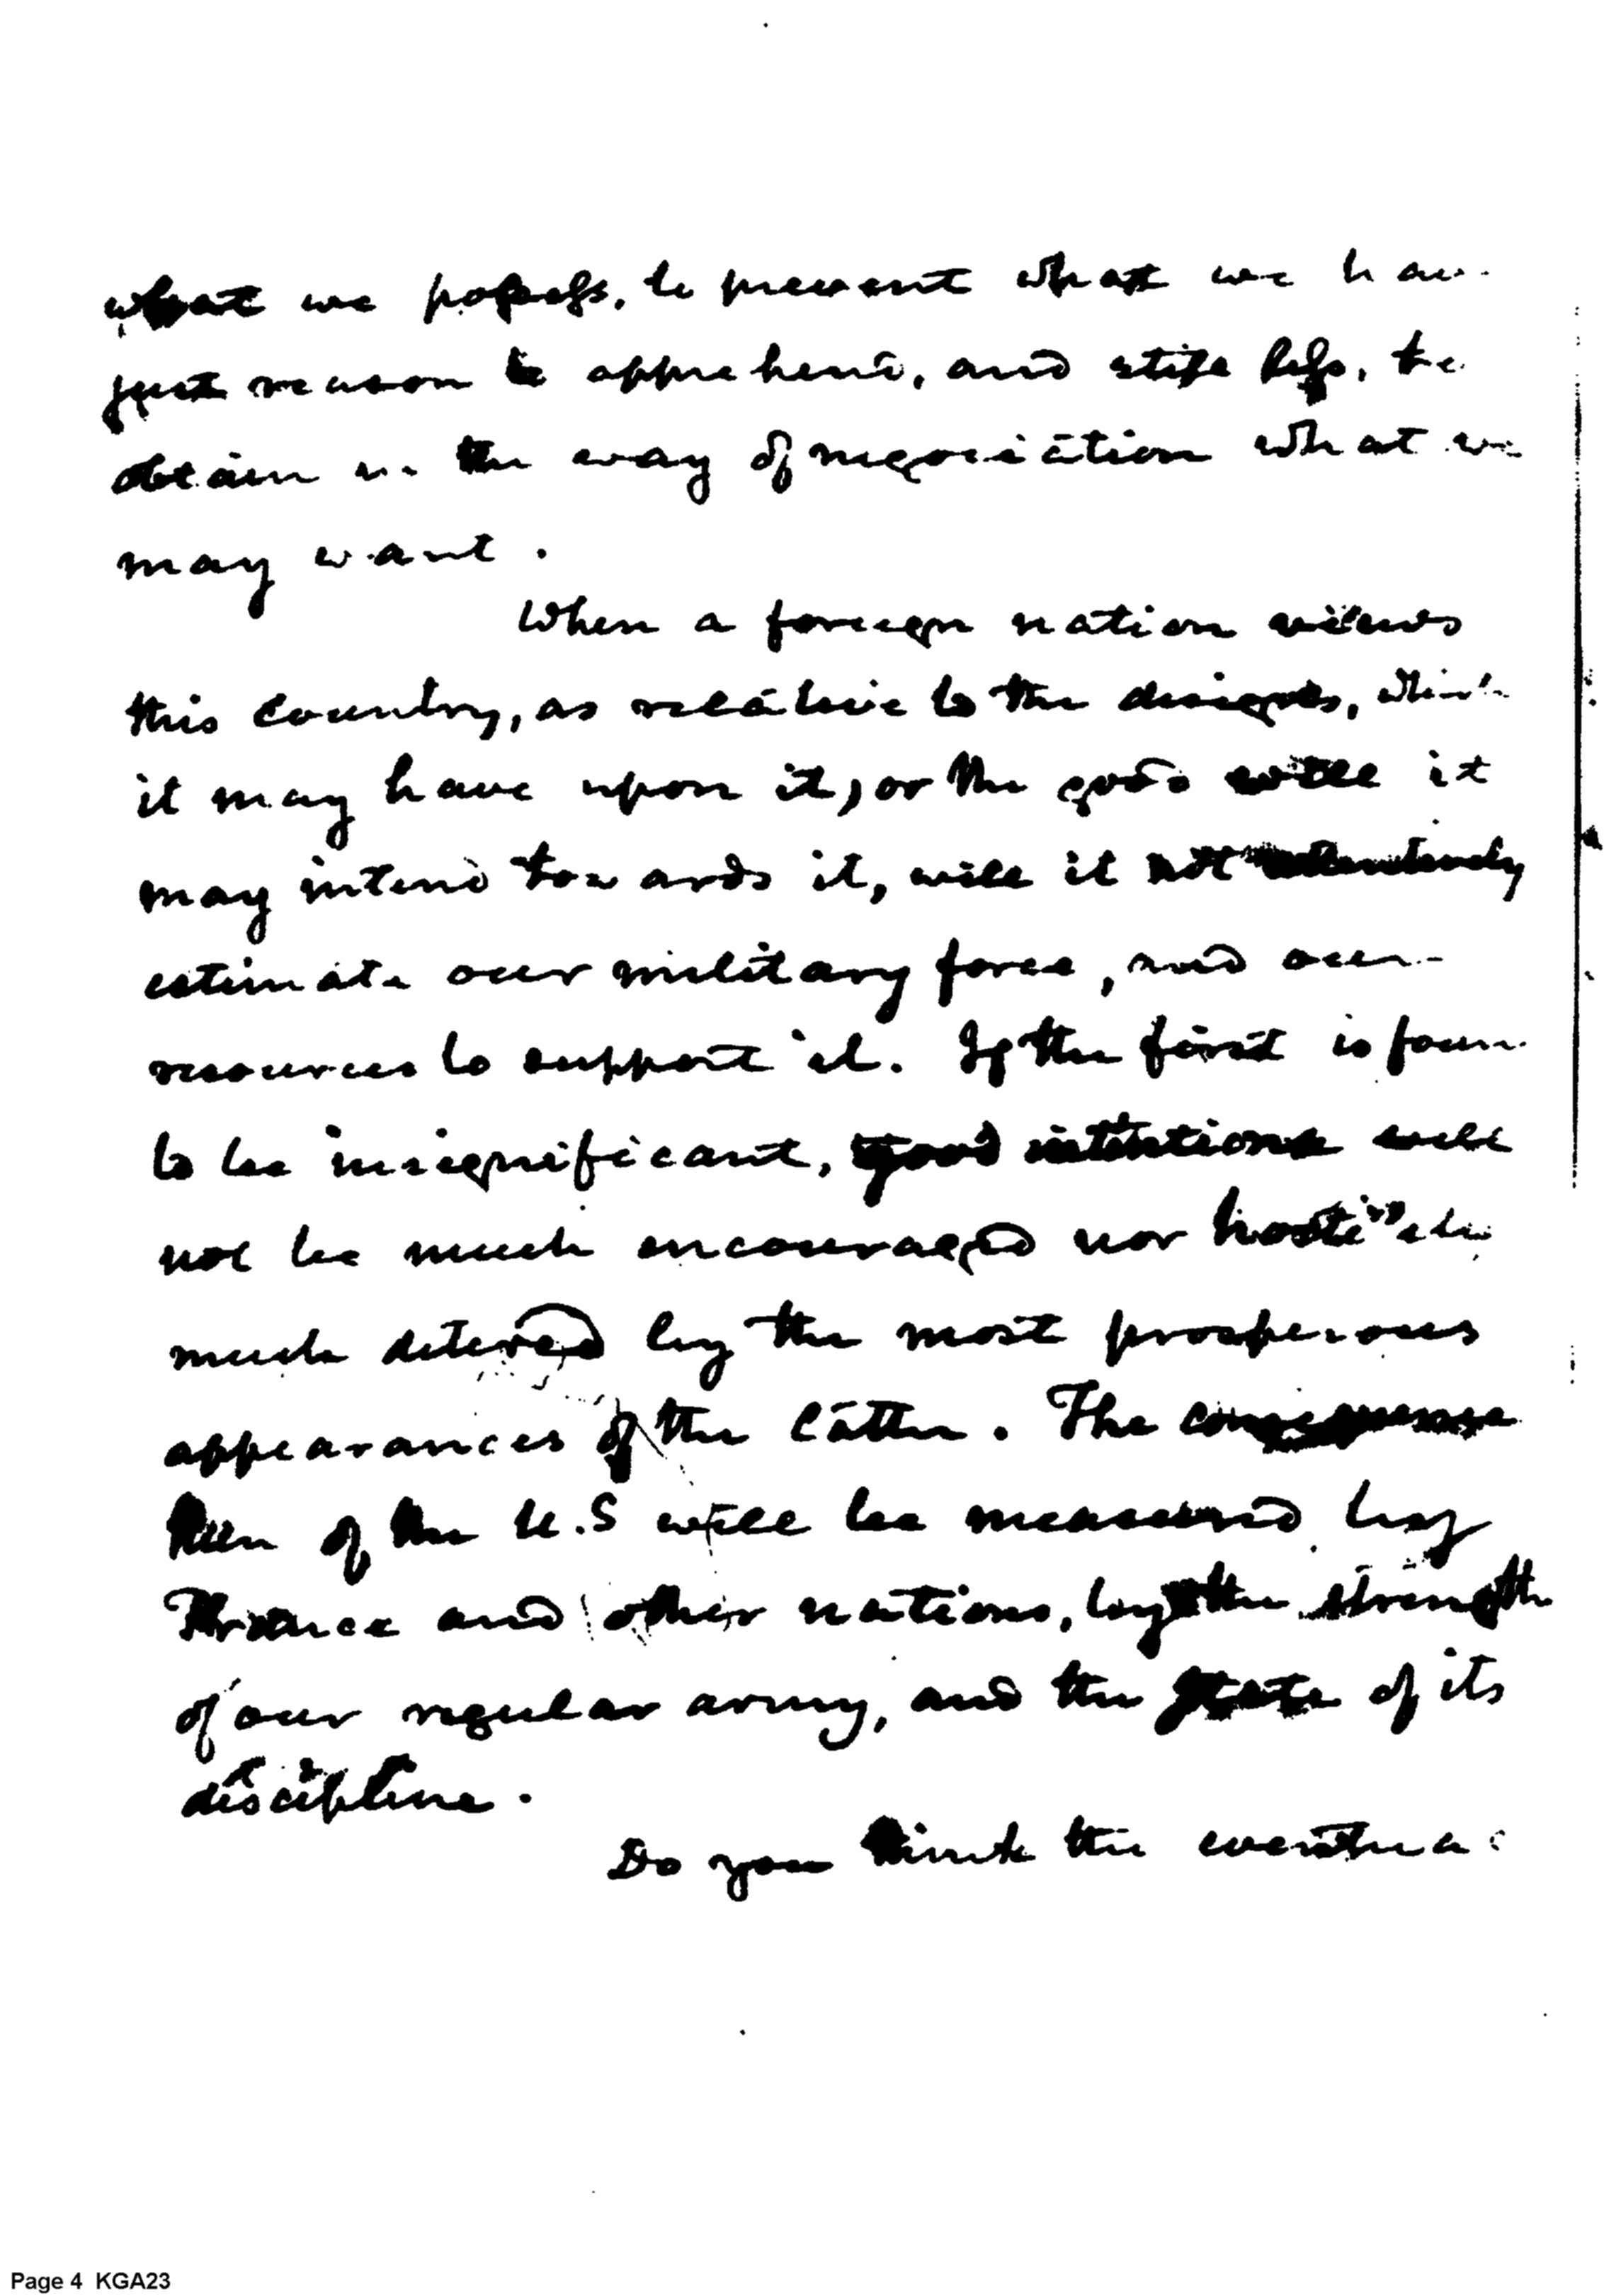 what we possess, to prevent what we hav
just reason to apprehend, and still less, to
obtain in the way of negociation what we
may want.
When a foreign nation views
this country, as relative to the designs, which
it may have upon it, or the good will it
may intend towards it, will it not attentively
estimate our military force, and our
resources to support it. If the first is foun
to be insignificant, good intentions will
not be much encouraged nor hostile
much detered by the most prosperous
appearances of the latter. The consequence
then of the U.S will be measured by
France and other nations, by the strength
of our regular army, and the state of its
discipline.
Do you think the eventua
Page 4 KGA23